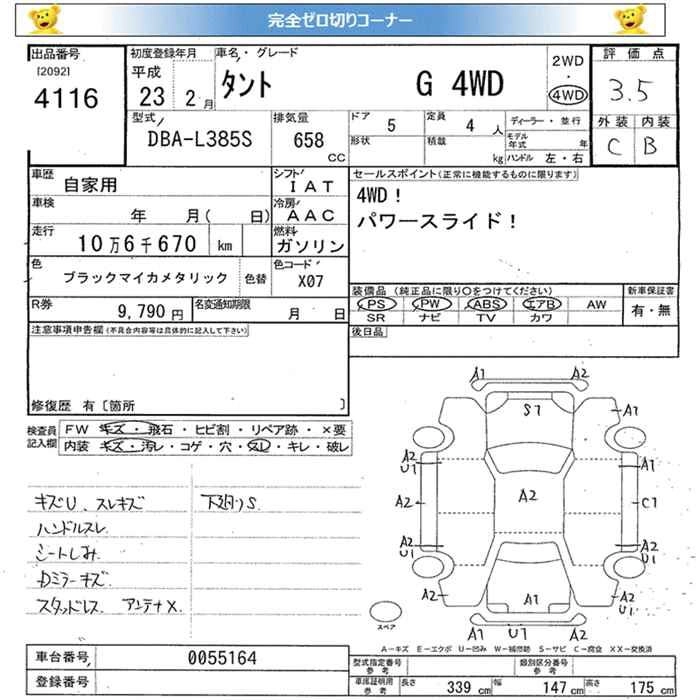 完全ゼロ切りコーナー
出品番号
[2092]
4116
初度登録年月
平成
23 2月
車名・グレード
タント G 4WD
2WD
・
4WD
評価点
3.5
外装 内装
C B
型式
DBA-L385S
排気量
658
CC
ドア 5
定員 4 人
形状
積載 kg
ディーラー・並行
モデル年式 年
ハンドル 左・右
車歴
自家用
シフト
IAT
車検
年 月( 日)
冷房
AAC
走行
10万6千670 km
燃料
ガソリン
色
ブラックマイカメタリック
色替
色コード
X07
R券
9,790円
名変通知期限
月 日
セールスポイント(正常に機能するものに限ります)
4WD!
パワースライド!
装備品 (純正品に限り○をつけてください)
PS PW ABS エアB AW
SR ナビ TV カワ
新車保証書
有・無
後日品
注意事項申告欄(不具合内容等は具体的に記入して下さい)
修復歴 有[箇所 ]
検査員
記入欄
FW キズ・飛石・ヒビ割・リペア跡・×要
内装 キズ・汚レ・コゲ・穴・スレ・キレ・破レ
キズU、スレキズ
ハンドルスレ
シートしみ
Dミラーキズ
スタッドレス アンテナX
下廻りS
A1 A2
S1
A1
A2
U1
A1
A2
A2
C1
A2
U1
A2
A2
A1
A2
U1
A1 U1 A2
スペア
A-キズ E-エクボ U-凹み W-補修跡 S-サビ C-腐食 XX-交換済
車台番号
0055164
登録番号
型式指定番号
参考
類別区分番号
参考
車庫証明用
参考
長さ 339 cm 幅 147 cm 高さ 175 cm